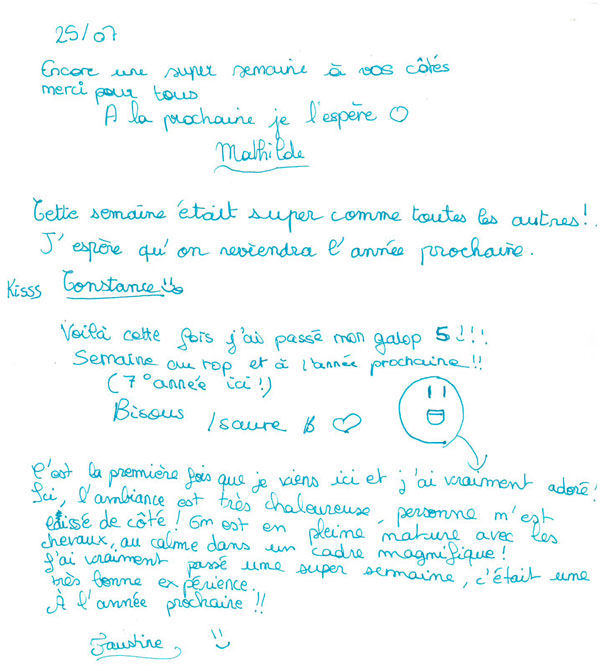 25/07
Encore une super semaine à vos côtés
merci pour tous
A la prochaine je l'espère
Mathilde
Cette semaine était super comme toutes les autres!
J'espère qu'on reviendra l'année prochaine.
Kisss Constance
Voilà cette fois j'ai passé mon galop 5!!!
Semaine au top et à l'année prochaine!!
(7° année ici!)
Bisous Isaure B
C'est la première fois que je viens ici et j'ai vraiment adoré!
Ici, l'ambiance est très chaleureuse, personne m'est
laissé de côté! On est en pleine nature avec les
chevaux, au calme dans un cadre magnifique!
J'ai vraiment passé une super semaine, c'était une
très bonne expérience.
À l'année prochaine!!
Faustine